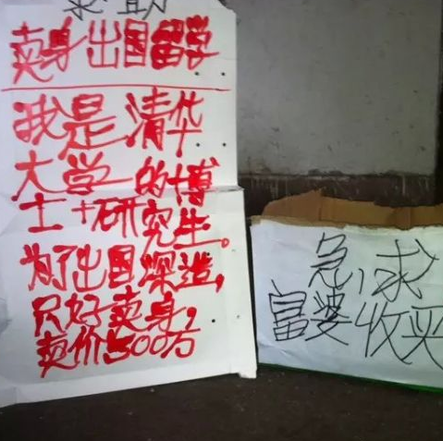 求助
卖身出国留学
我是清华
大学一的博
士+研究生。
为了出国深造,
只好卖身,
卖价500万
急,求
富婆收买